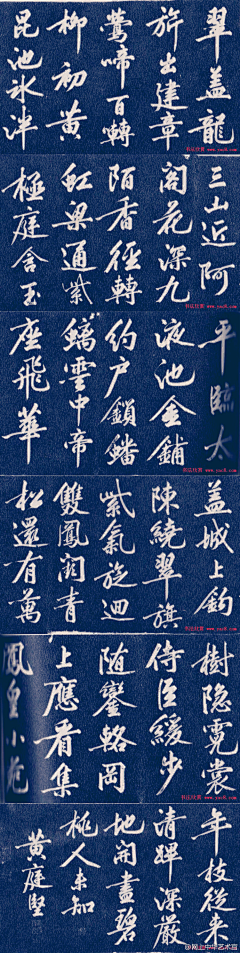 翠盖龍
旂出建章
鶯啼百轉
柳初黃
昆池冰泮
三山近阿
閣花深九
陌香徑轉
虹梁通紫
極庭含玉
平臨太
液池金鋪
約户鎖蟠
螭雲中帝
座飛華
盖城上鈎
陳繞翠旗
紫氣旋迴
雙鳳闕青
松還有萬
樹隐霓裳
侍臣緩步
随鑾輅岡
上應看集
鳳皇小苑
年枝從来
清蹕深嚴
地開盡碧
桃人未知
黃庭堅
@网上中华艺术宫